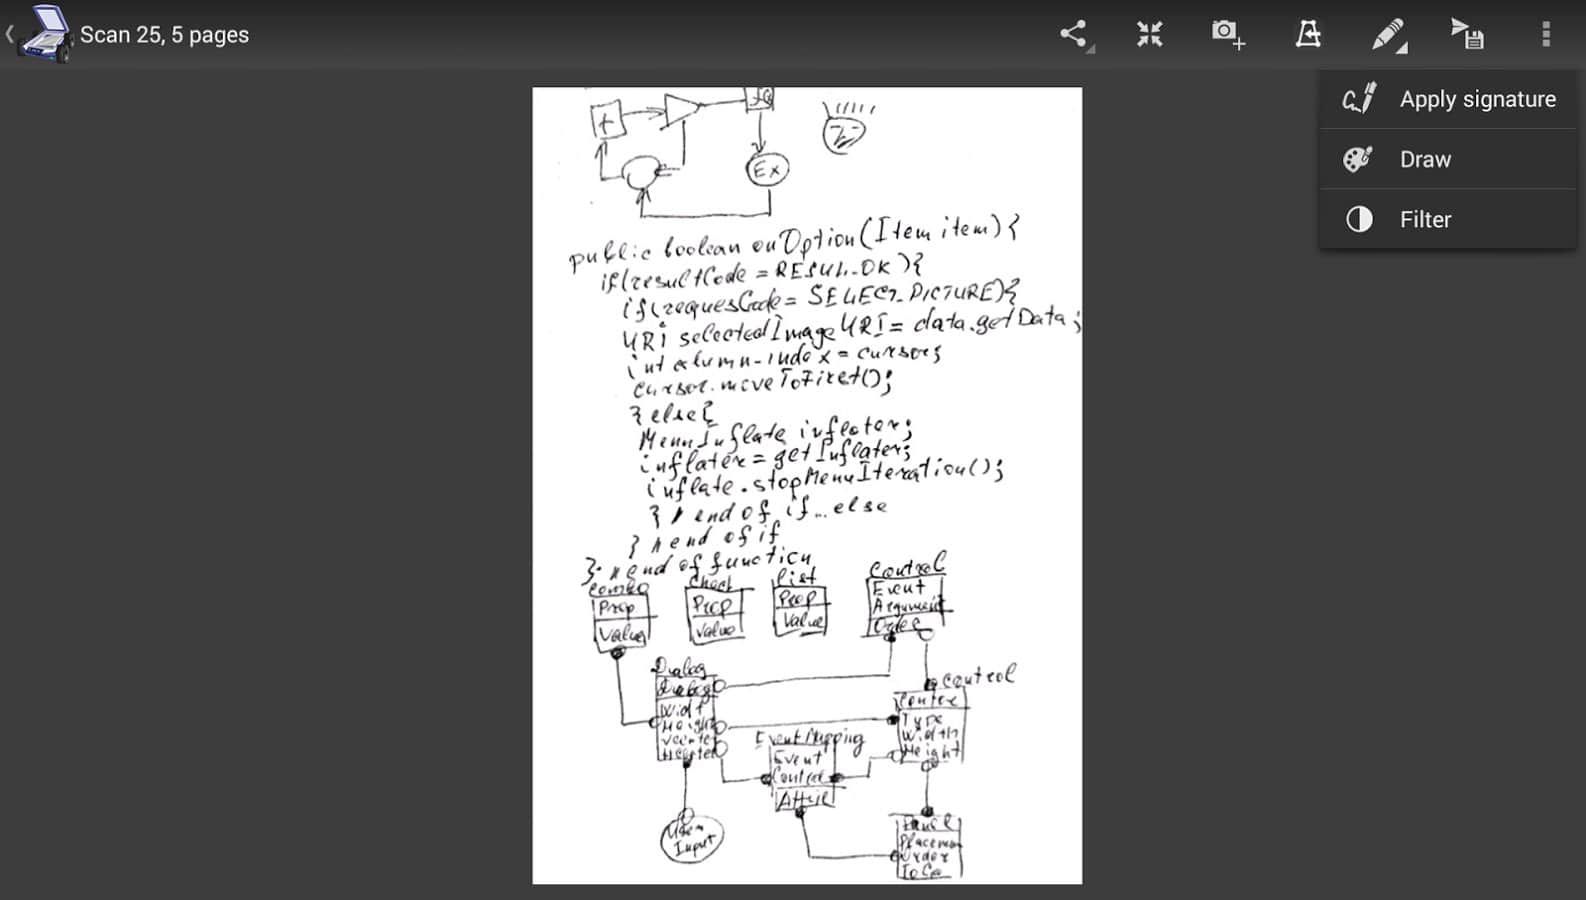 Scan 25, 5 pages
Apply signature
Draw
Filter
+
Ex
public boolean onOption(Item item){
if(resultCode = RESUL-OK){
if(requesCode = SELECT_PICTURE){
URi selectedImageURI = data.getData;
int column-index = cursor;
cursor.moveToFirst();
} else{
MenuInflate inflator;
inflater = getInflater;
inflate.stopMenuIteration();
} // end of if...else
} // end of if
}; // end of function
Combo
Check
List
Control
Prop
Value
Prop
Value
Prop
Value
Event
Argument
Order
Dialog
Dialog
Widt
Height
Vcenter
Hcenter
Control
Type
Width
Height
Event Mapping
Event
Control
Attrib
User
Input
Panel
Placemen
Order